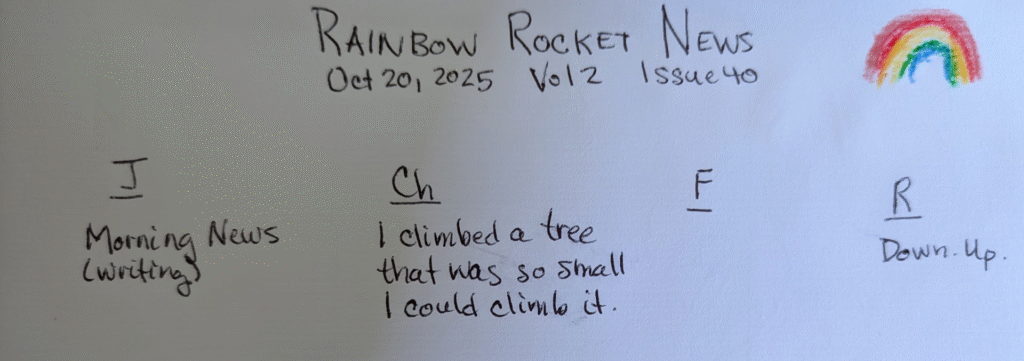 RAINBOW ROCKET NEWS
Oct 20, 2025 Vol 2 Issue 40
J
Morning News
(writing)
Ch
I climbed a tree
that was so small
I could climb it.
F
R
Down. Up.